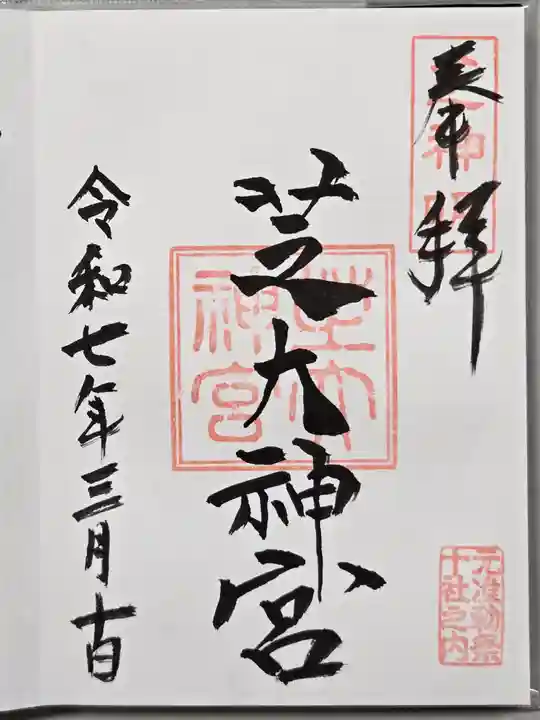 奉拝
芝大神宮
令和七年三月十日
芝大
神宮
元准勅祭
十社之内